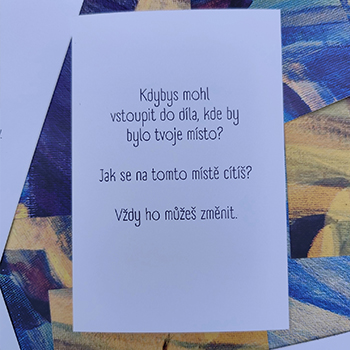 Kdybys mohl
vstoupit do díla, kde by
bylo tvoje místo?
Jak se na tomto místě cítíš?
Vždy ho můžeš změnit.